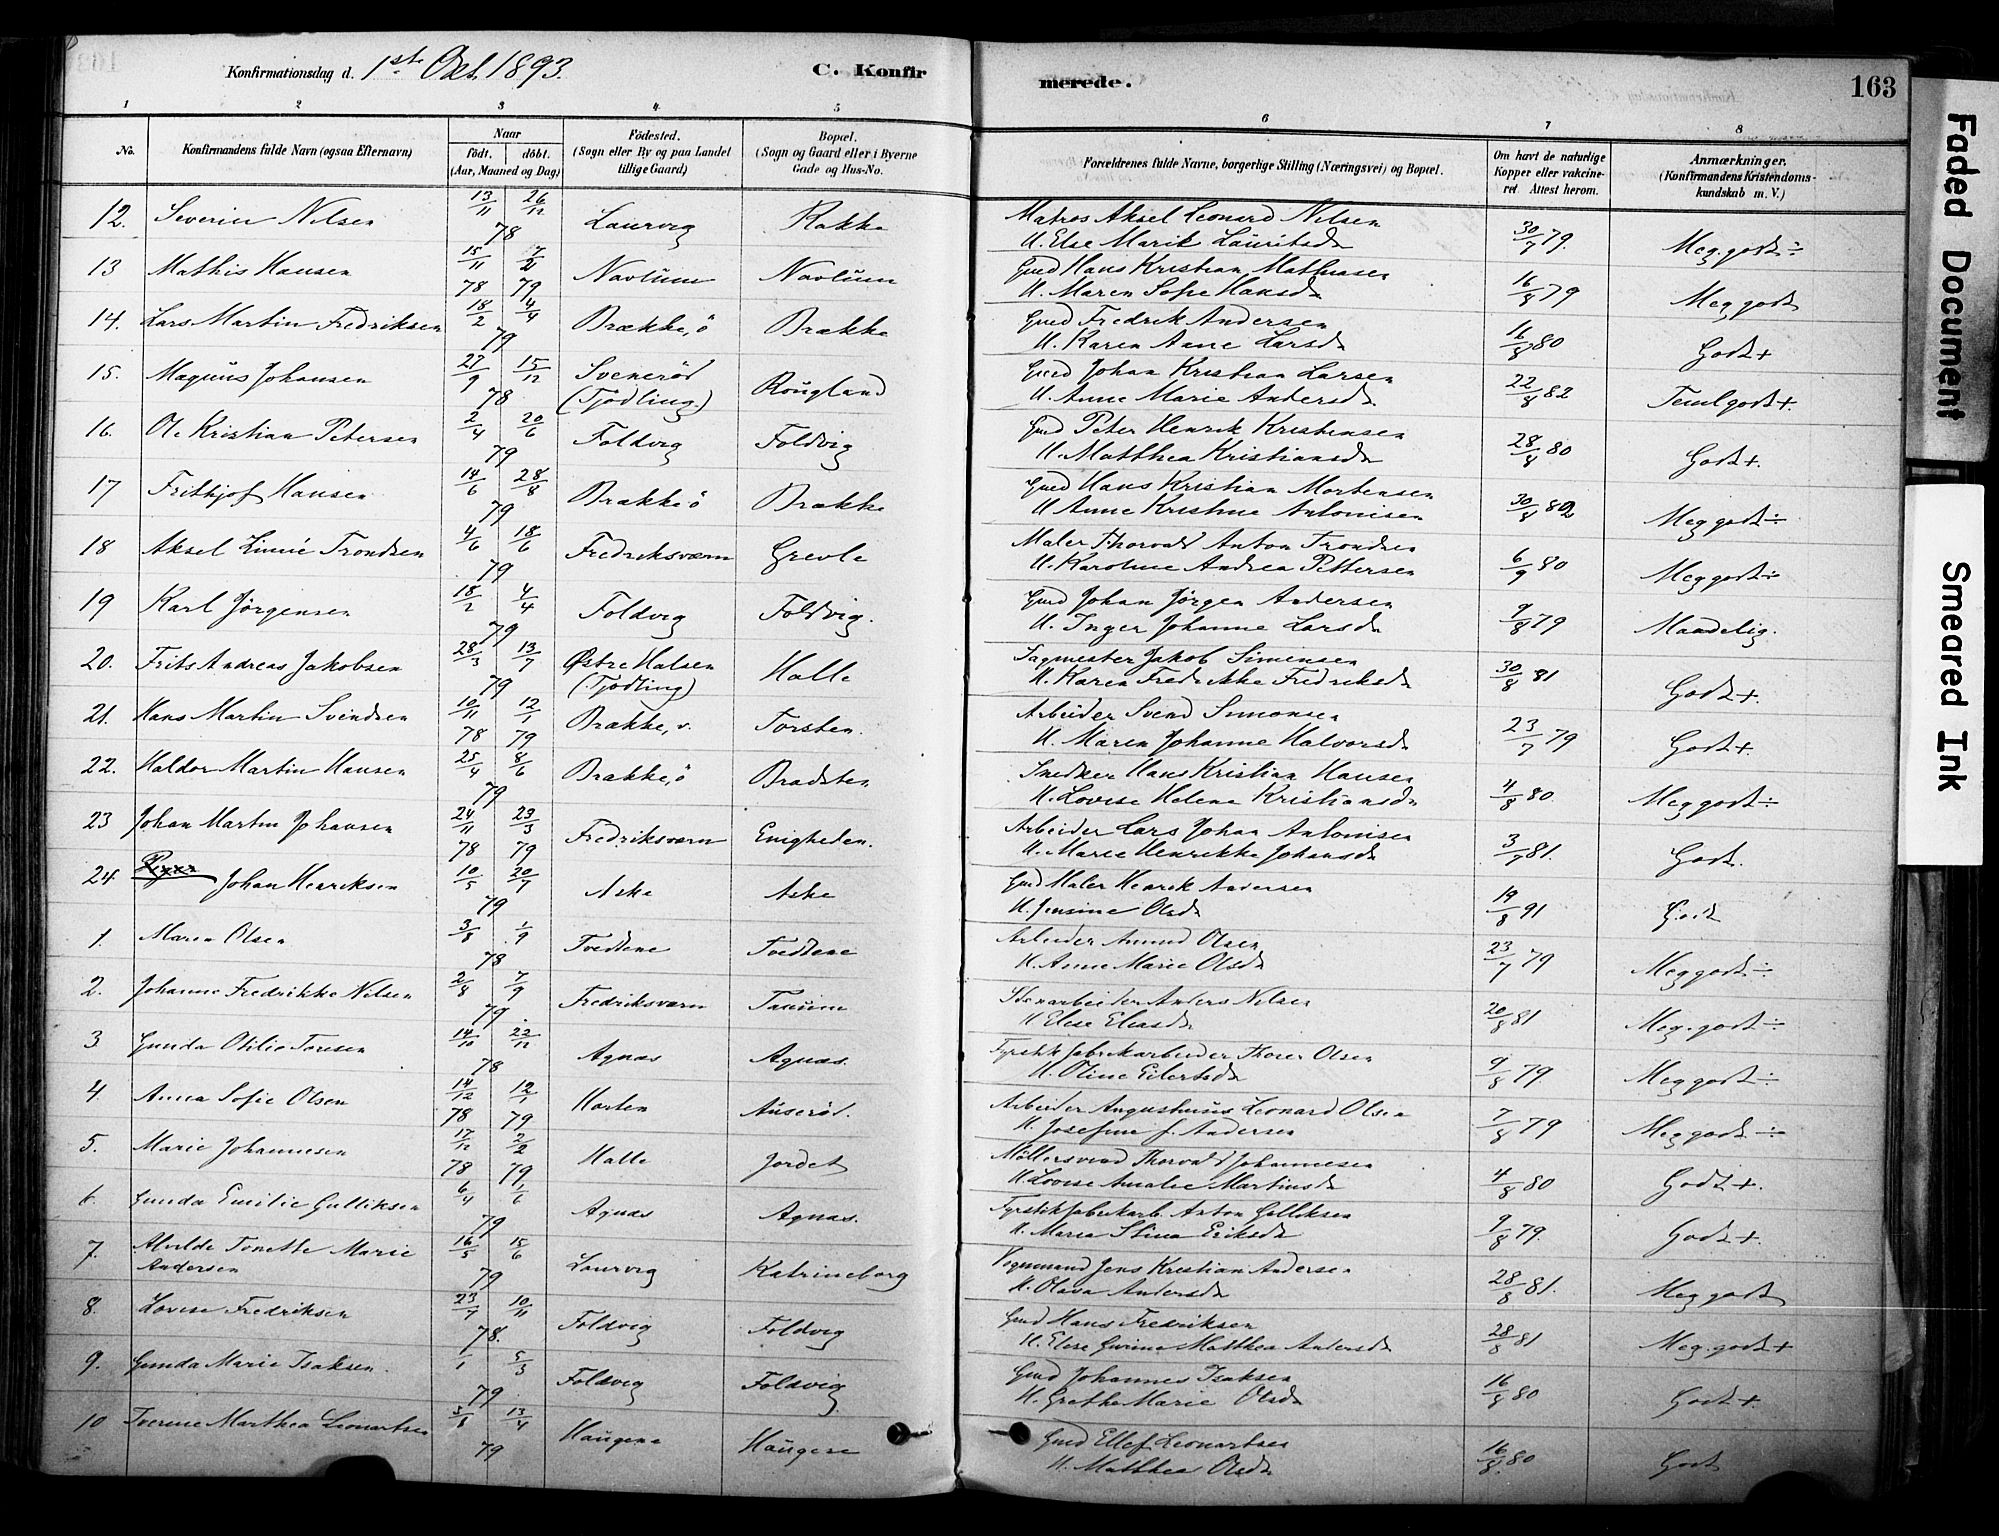 Konfirmationsdag d. 1st Okt. 1893.
C. Konfirmerede.
163
1 2 3 4 5 6 7 8
No. | Konfirmandens fulde Navn (ogsaa Efternavn) | Naar født. døbt. (Aar, Maaned og Dag) | Fødested. (Sogn eller By og paa Landet tillige Gaard) | Bopæl. (Sogn og Gaard eller i Byerne Gade og Hus-No. | Forældrenes fulde Navne, borgerlige Stilling (Næringsvei) og Bopæl. | Om havt de naturlige Kopper eller vakcineret. Attest herom. | Anmærkninger. (Konfirmandens Kristendomskundskab m. V.)
12. Severin Nilsen 13/11 26/12 78 Laurvig Rakke Matros Aksel Leonard Nilsen
H. Else Marik Lauritsdr 30/7 79. Meg. godt ÷
13 Mathis Hansen 15/11 78 7/2 79 Navlum Navlum Grd Hans Kristian Mathiasen
H. Maren Sofie Hansdr 16/8 79 Meg godt
14. Lars Martin Fredriksen 18/2 4/4 79 Brække, ö Brække Grd Fredrik Andersen
H. Karen Anne Larsdr 16/8 80 Godt +
15. Magnus Johansen 27/9 15/12 78 Svenerød (Tjødling.) Rougland Grd Johan Kristian Larsen
H. Anne Marie Andersdr 22/8 82 Teml godt +.
16. Ole Kristian Petersen 2/4 20/6 79 Foldvig Foldvig Grd Peter Henrik Kristensen
H. Matthea Kristiansdr 28/8 80 Godt +.
17 Frithjof Hansen 14/6 28/8 79 Brække ö Brække Grd Hans Kristian Mortensen
H Anne Kristine Antonisen 30/8 82 Meg godt ÷
18 Aksel Linné Trondsen 4/6 18/6 79 Fredriksværn Grevle Maler Thorvald Anton Trondsen
H. Karoline Andrea Pettersen 6/9 80 Meg godt ÷
19 Karl Jörgensen 18/2 4/4 79 Foldvig Foldvig. Grd Johan Jörgen Andersen
H. Inger Johanne Larsdr 9/8 79 Maadelig.
20. Frits Andreas Jakobsen 28/3 13/7 79 Østre Halsen (Tjødling) Halle Sagmester Jakob Simensen
H. Karen Fredrikke Fredriksdr 30/8 81 Godt +.
21. Hans Martin Svendsen 10/11 78 12/1 79 Brække, v. Torsten. Arbeider Svend Simonsen
H. Maren Johanne Halvorsdr 23/7 79 Godt +
22. Haldor Martin Hansen 25/4 8/6 79 Brække, ö Bradsten Snedker Hans Kristian Hansen
H. Lovise Helene Kristiansdr 4/8 80. Meg godt ÷
23 Johan Martin Johansen 24/11 78 23/3 79 Fredriksværn Enigheden. Arbeider Lars Johan Antonisen
H. Marie Henrikke Johansdr 3/7 81. Godt.
24. Johan Henriksen 10/5 20/7 79 Aske Aske Grd Maler Henrik Andersen
H. Jensine Olsdr 19/8 91 Godt
1. Maren Olsen 3/8 1/9 78 Tvedtene Tvedtene Arbeider Amund Olsen
H. Anne Marie Olsdr 23/7 79 Meg godt ÷
2. Johanne Fredrikke Nilsen 2/8 7/9 79. Fredriksværn Tanum Stenarbeider Anders Nilsen
H Elese Eliasdr 20/8 81 Meg. godt ÷
3 Gunda Otilie Toresen 14/10 22/12 78 Agnæs Agnæs. Fyrstikfabrikarbeider Thorer Olsen
H. Oline Eilertsdr 9/8 79. Meg godt ÷
4. Anna Sofie Olsen 14/12 78 12/1 79 Horten Auserød. Arbeider Augustinus Leonard Olsen
H. Josefine f. Andersen 7/8 79 Meg godt ÷
5. Marie Johannesen 17/12 78 2/2 79 Halle Jordet Möllersvend Thorvald Johannesen
H Lovise Amalie Martinsdr 4/8 80 Godt +.
6. Gunda Emilie Gulliksen 6/4 1/6 79 Agnæs Agnæs. Fyrstikfabrikarb. Anton Gulliksen
H. Maria Stina Eriksdr 9/8 79. Godt +.
7. Alvilde Tonette Marie Andersen 16/5 15/6 79 Laurvig Katrineborg Vognmand Jens Kristian Andersen
H. Olava Andersdr 28/8 81. Meg godt
8. Lovise Fredriksen 23/7 10/11 78. Foldvig Foldvig Grd Hans Fredriksen
H. Elese Gurine Matthea Andersdr 28/8 81 Meg. godt +
9. Gunda Marie Isaksen. 7/1 5/3 79 Foldvig Foldvig Grd Johannes Isaksen
H. Grethe Marie Olsdr 16/8 80 Godt +.
10 Iverine Marthea Leonartsen 5/1 13/4 79 Haugene Haugene Grd Ellef Leonartsen
H. Matthea Olsdr 16/8 80 Godt
Faded Document
Smeared Ink